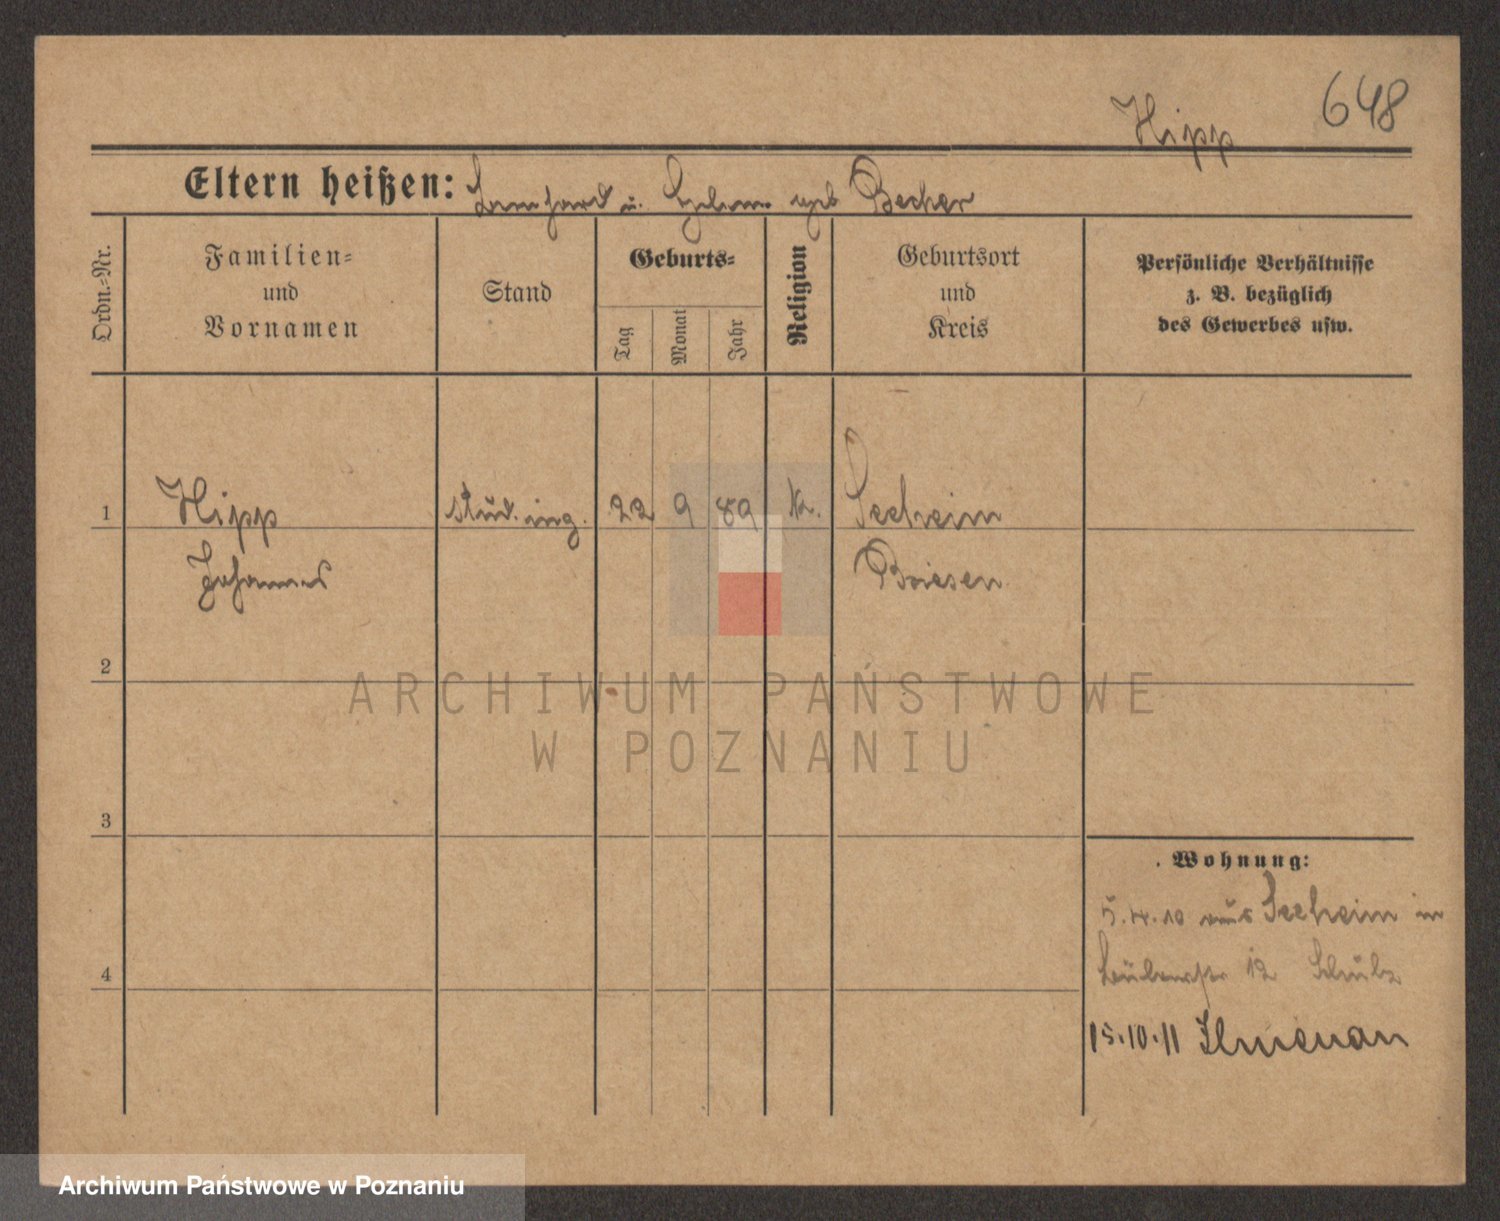 648
Hipp
Eltern heißen: Bernhard u. geb Becker
Ordn.-Nr.
Familien-
und
Vornamen
Stand
Geburts-
Tag
Monat
Jahr
Religion
Geburtsort
und
Kreis
Persönliche Verhältnisse
z. B. bezüglich
des Gewerbes usw.
1 Hipp stud. ing. 22 9 89 ka. Seeheim
Johannes Briesen
2
ARCHIWUM PAŃSTWOWE
W POZNANIU
3
Wohnung:
5.4.10 aus Seeheim in
4
12 Schulz
15.10.11 Ilmenau
Archiwum Państwowe w Poznaniu